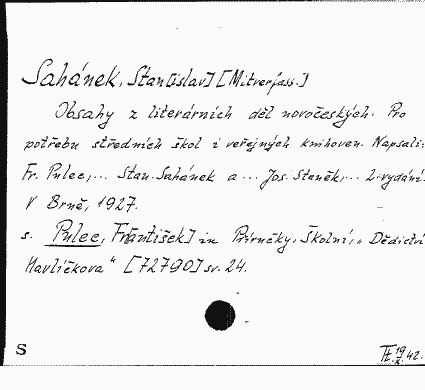 Sahánek, Stan[islav] [Mitverfass.]
Obsahy z literárních děl novočeských. Pro
potřebu středních škol i veřejných knihoven. Napsali:
Fr. Pulec,... Stan. Sahánek a ... Jos. Staněk,... 2. vydání.
V Brně, 1927.
s. Pulec, František] in Příručky, Školní, „Dědictví
Havlíčkova" [72790] sv. 24.
S
19 42.